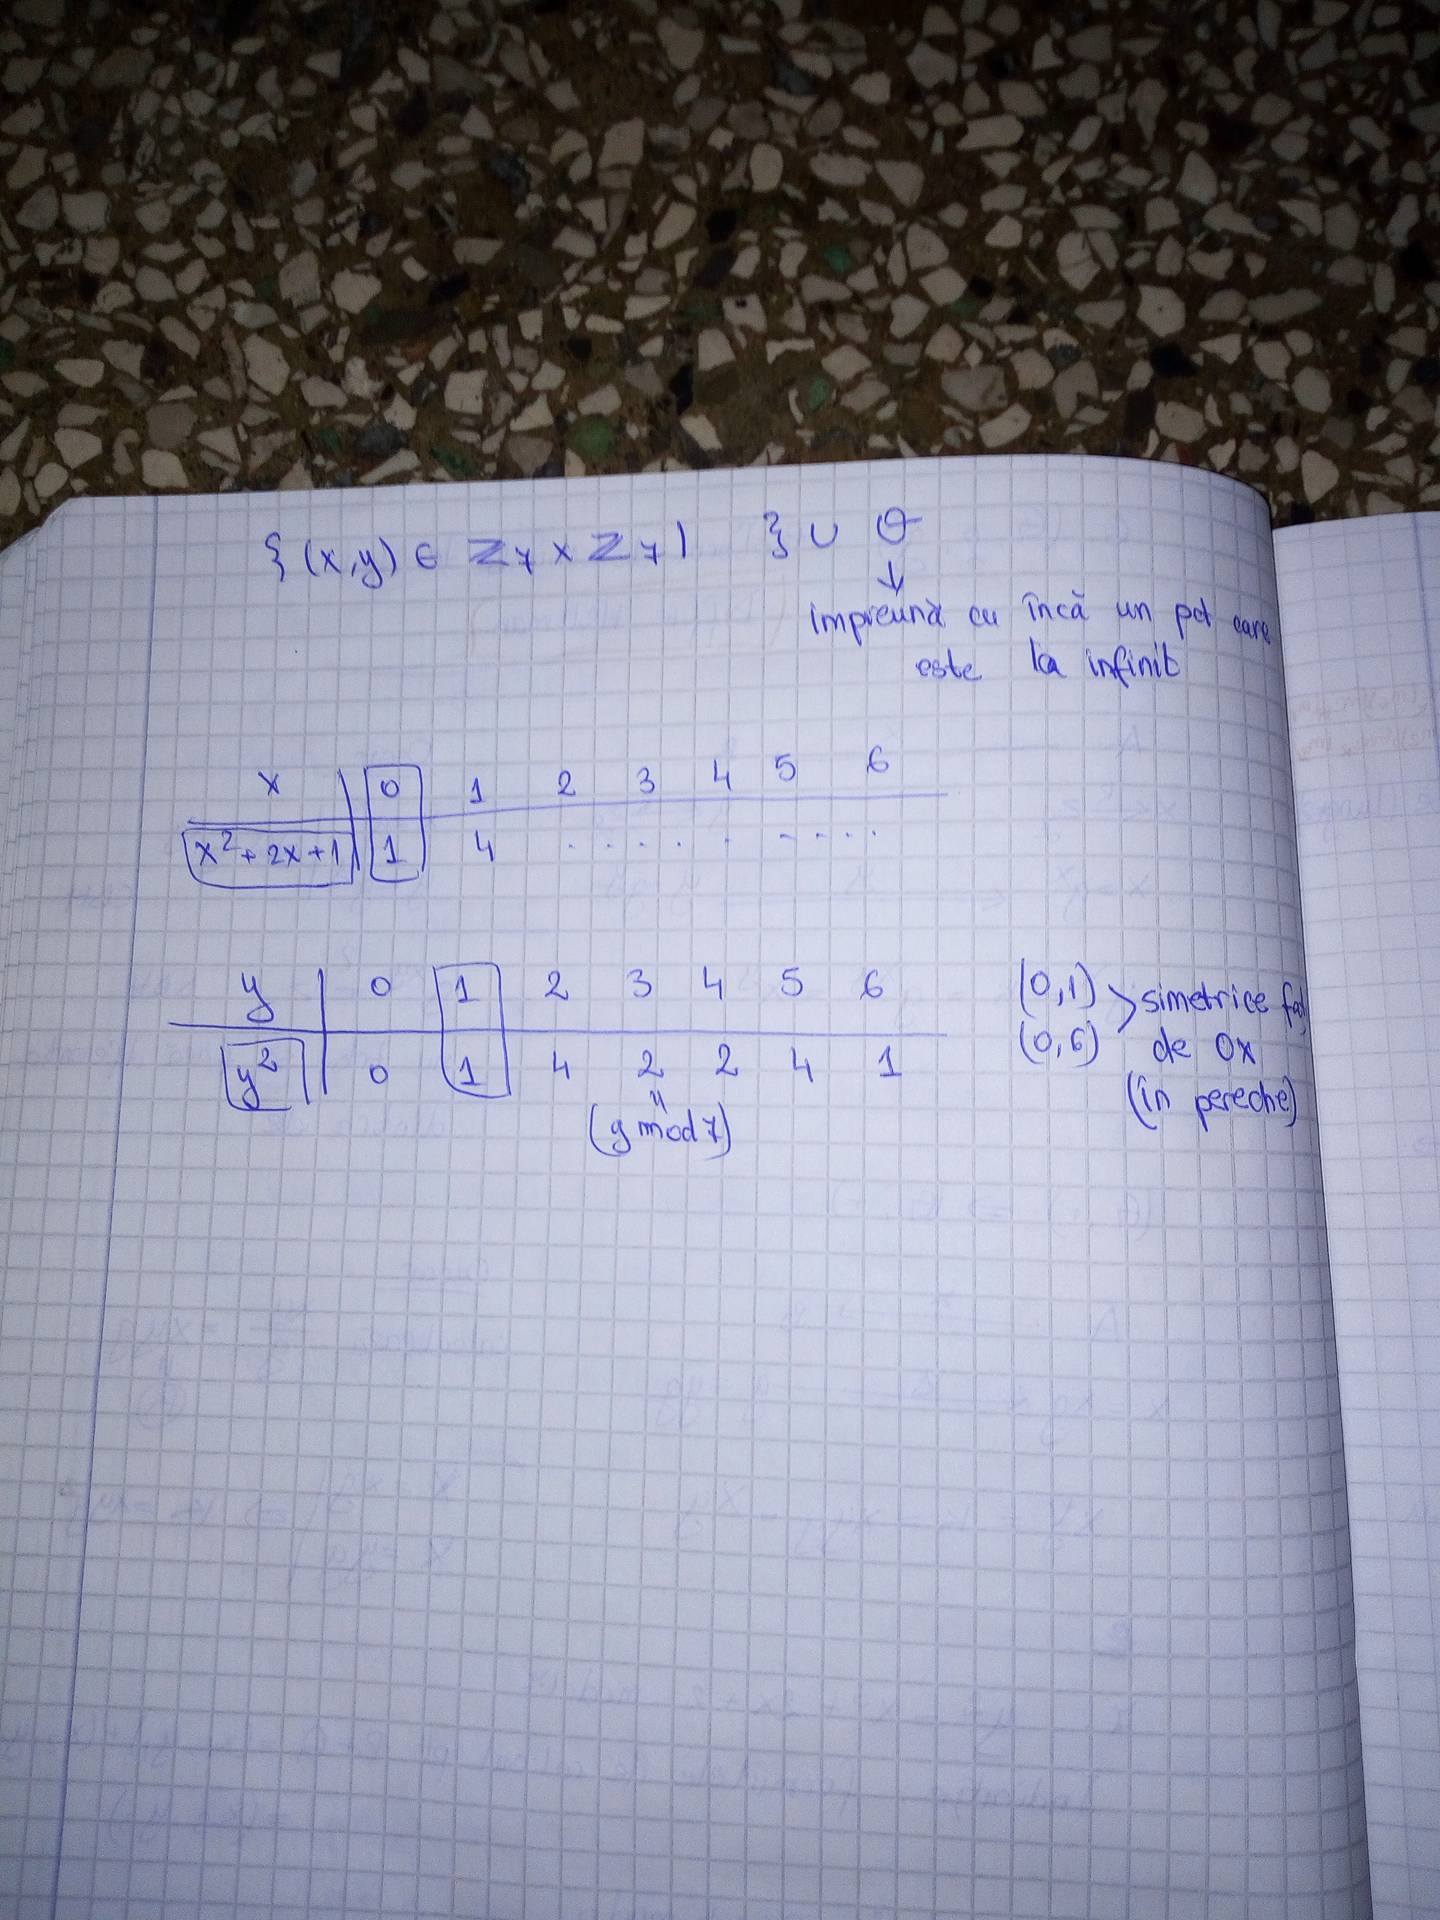 {(x,y) ∈ Z7 x Z7 | } ∪ O
↓
împreună cu încă un pct care
este la infinit
x | 0 1 2 3 4 5 6
x²+2x+1 | 1 4 . . . . . - . . .
y | 0 1 2 3 4 5 6
y² | 0 1 4 2 2 4 1
(9 mod 7)
(0,1)
(0,6) > simetrice față
de Ox
(în pereche)